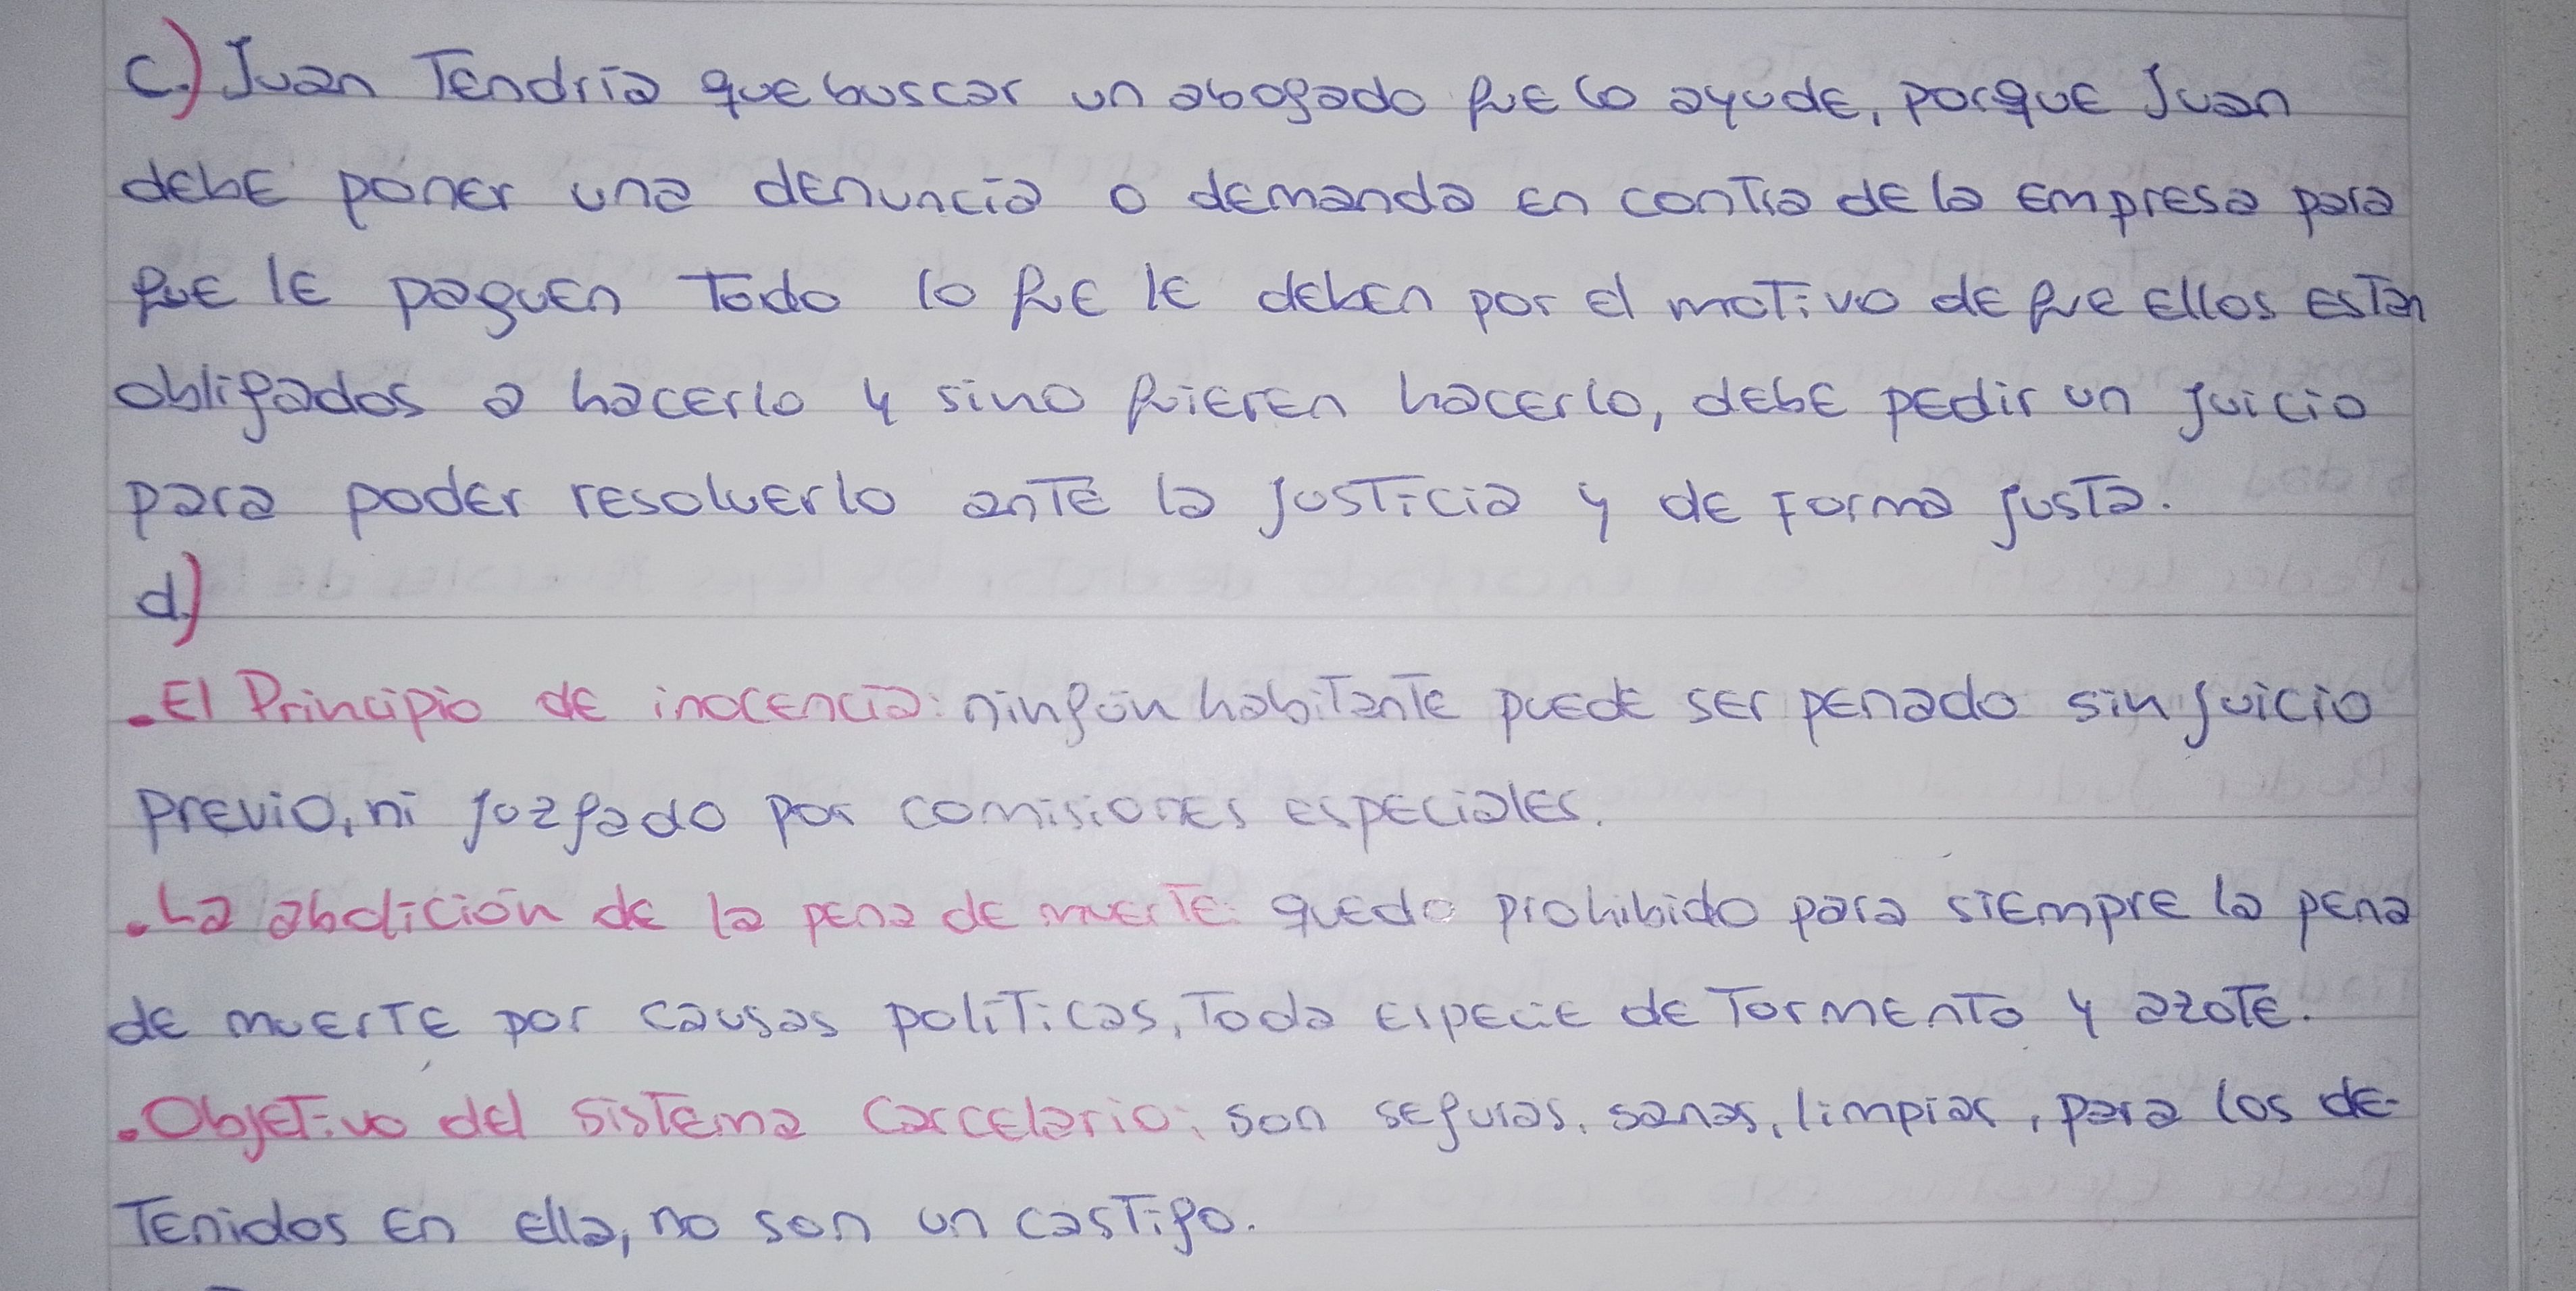 c.) Juan Tendría que buscar un abogado que lo ayude, porque Juan
debe poner una denuncia o demanda en contra de la empresa para
que le paguen Todo lo que le deben por el motivo de que Ellos estan
obligados a hacerlo y sino quieren hacerlo, debe pedir un juicio
para poder resolverlo ante la justicia y de forma justa.
d.)
• El Principio de inocencia: ningún habitante puede ser penado sin juicio
previo, ni juzgado por comisiones especiales.
• La abolición de la pena de muerte: quedo prohibido para siempre la pena
de muerte por causas politicas, Toda especie de Tormento y azote.
• Objetivo del sistema Carcelario: son seguras, sanas, limpias, para los de-
Tenidos en ella, no son un castigo.